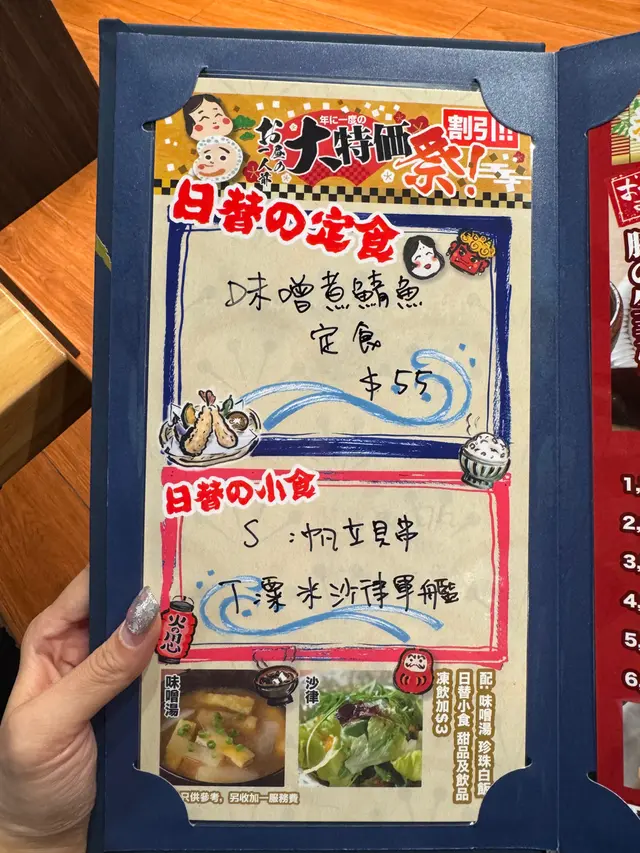 年に一度の
お一人様の
大特価祭!
割引!!
日替の定食
味噌煮鯖魚
定食
$55
日替の小食
S:帆立貝串
T:粟米沙律軍艦
味噌湯
沙律
配: 味噌湯 珍珠白飯
日替小食 甜品及飲品
凍飲加$3
只供參考, 另收加一服務費
1,
2,
3,
4,
5,
6,